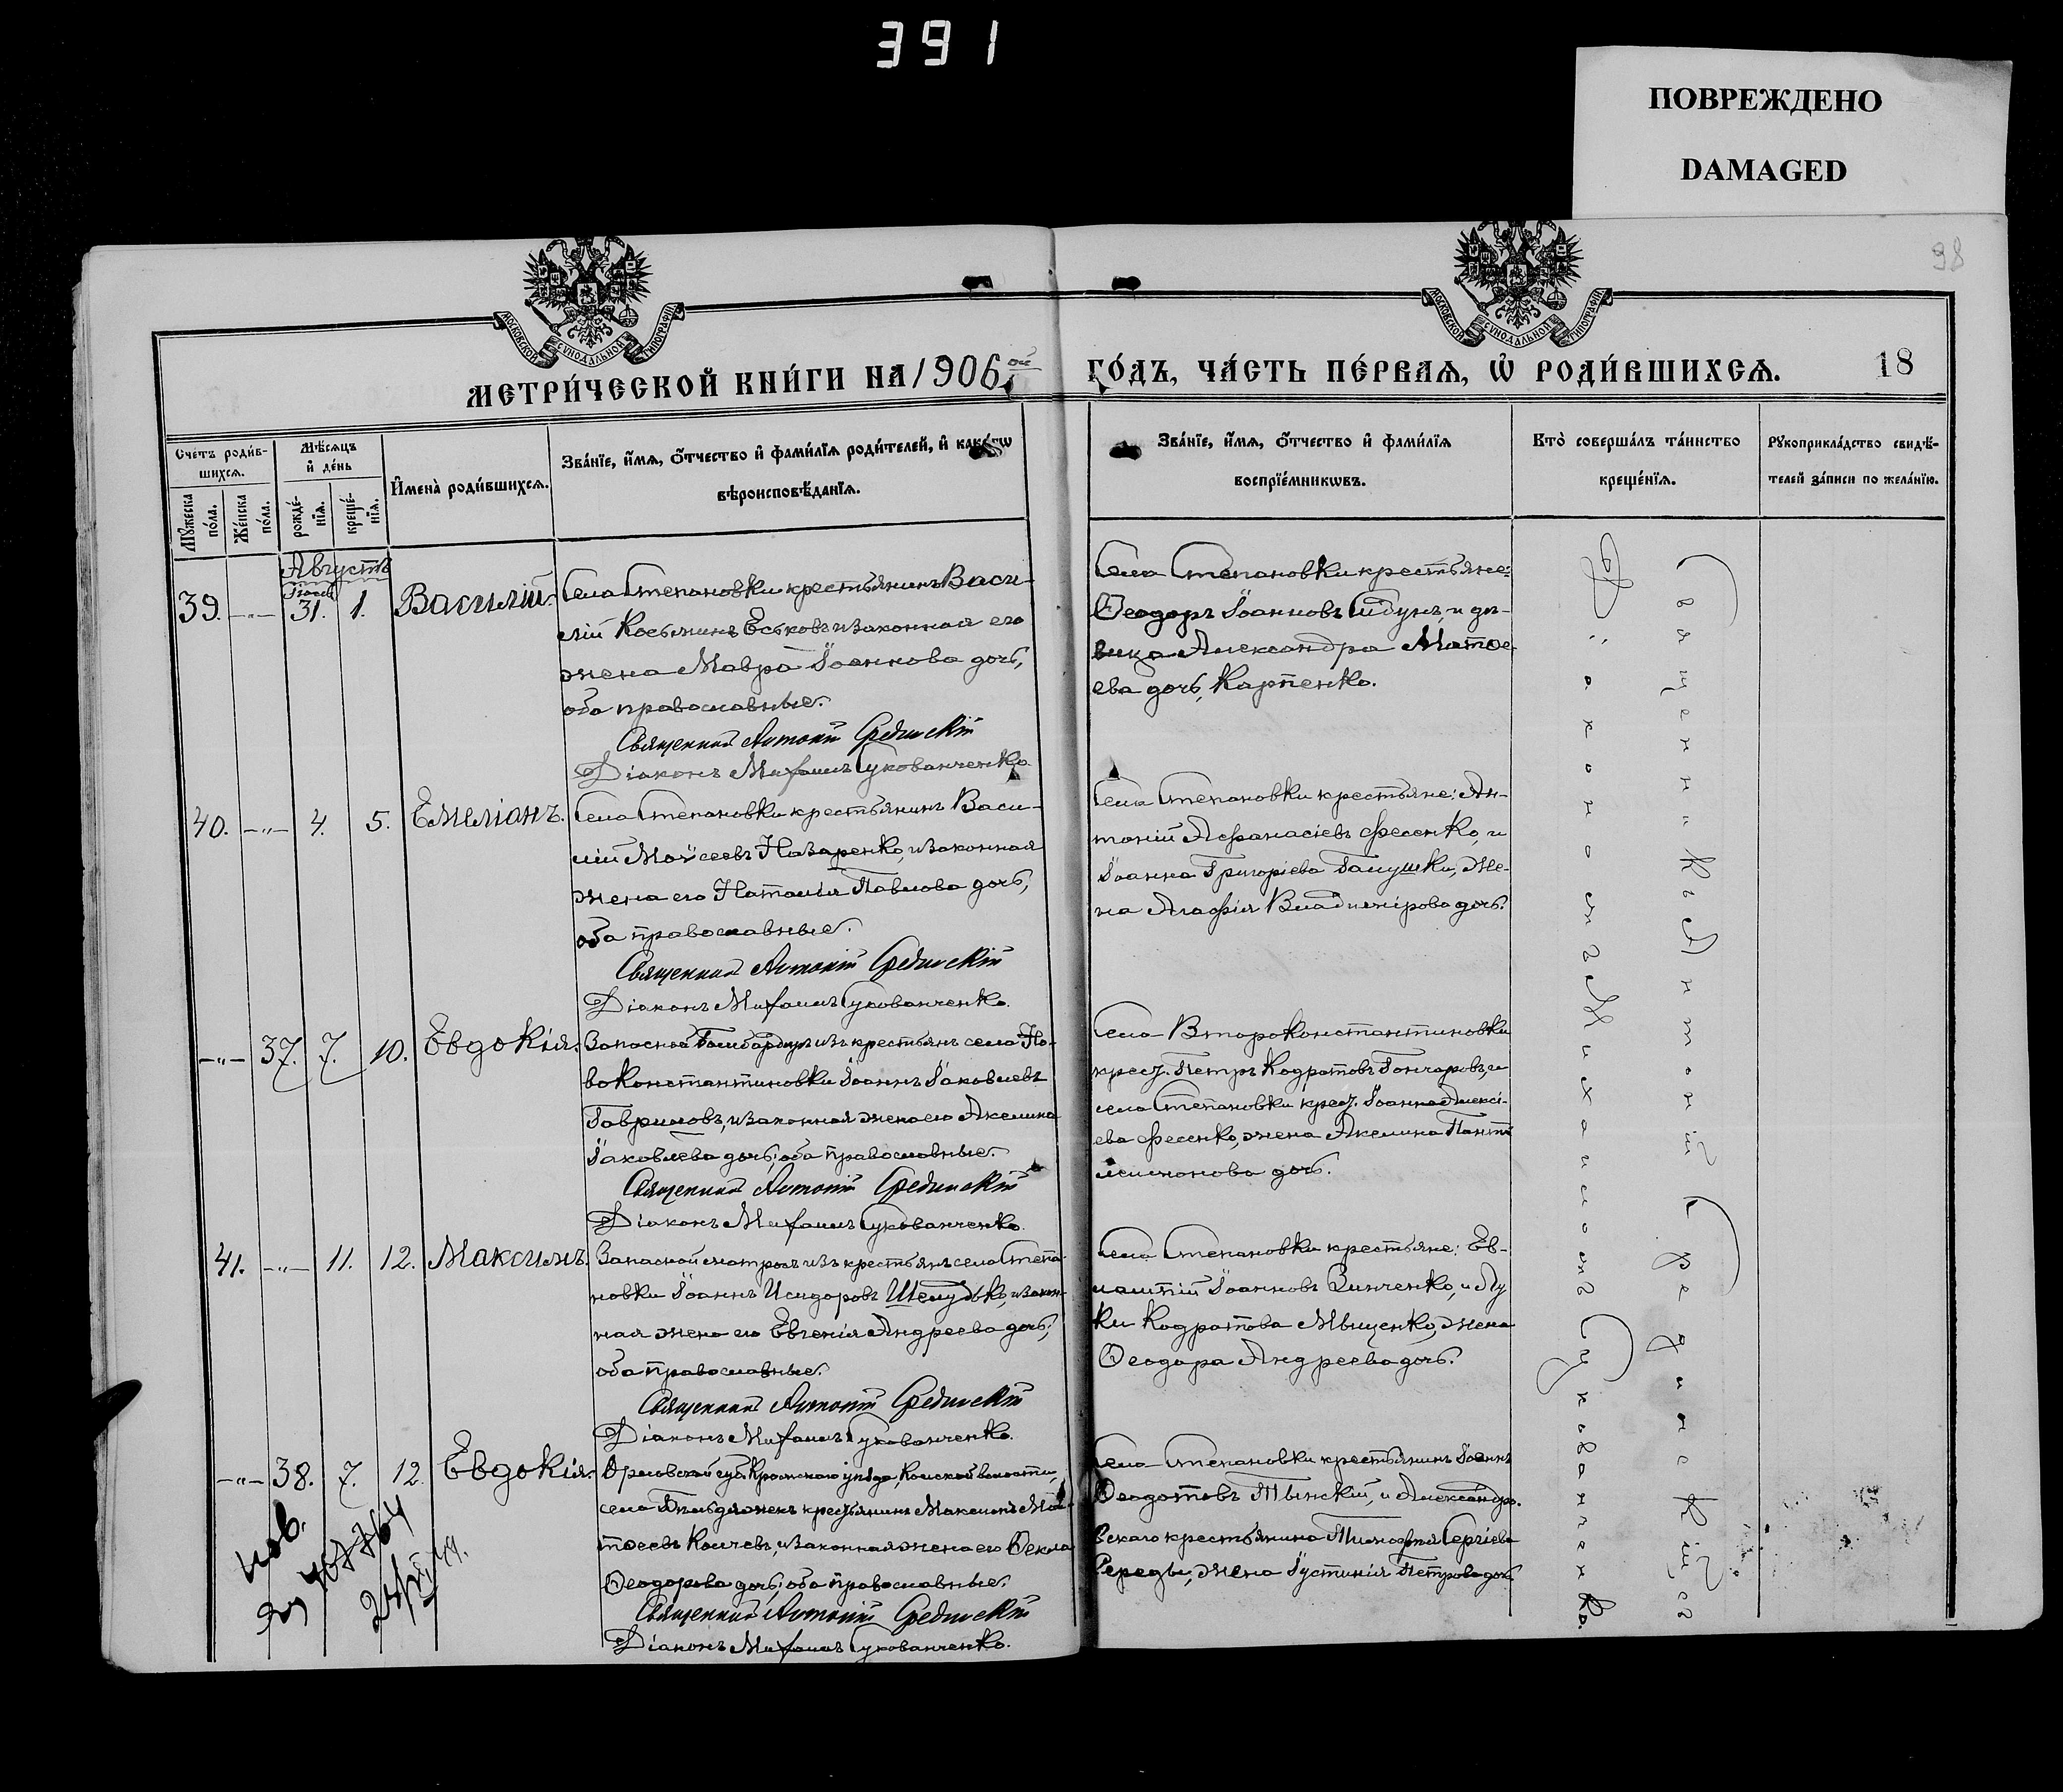 391
ПОВРЕЖДЕНО
DAMAGED
98
МОСКОВСКОЙ СѴНОДАЛЬНОЙ ТИПОГРАФІИ
МОСКОВСКОЙ СѴНОДАЛЬНОЙ ТИПОГРАФІИ
МЕТРИ́ЧЕСКОЙ КНИ́ГИ НА 1906 ой
ГО́ДЪ, ЧА́СТЬ ПЕ́РВАѦ, Ѡ РОДИ́ВШИХСѦ.
18
Сче́тъ роди́в-
шихсѧ.
Мꙋ́жеска
по́ла.
Же́нска
по́ла.
Мѣ́сѧцъ
и҆ де́нь
рожде́-
нїѧ.
креще́-
нїѧ.
И҆мена̀ роди́вшихсѧ.
Зва́нїе, и҆́мѧ, ѻ҆́тчество и҆ фами́лїѧ роди́телей, и҆ како́гѡ
вѣроисповѣ́данїѧ.
Зва́нїе, и҆́мѧ, ѻ҆́тчество и҆ фами́лїѧ
воспрїе́мникѡвъ.
Кто̀ соверша́лъ та́инство
креще́нїѧ.
Рꙋкоприкла́дство свидѣ́-
телей за́писи по жела́нїю.
Августъ
39. -"- 31. 1. Василій.
Села Степановки крестьянинъ Васи-
лій Косьминъ Еськовъ и законная его
жена Мавра Іоаннова дочь,
оба православные.
Священникъ Антоній Срединскій
Діаконъ Михаилъ Сукованченко
Села Степановки крестьяне:
Ѳеодоръ Іоанновъ Сидунъ, и дѣ-
вица Александра Матѳе-
ева дочь, Карпенко.
40. -"- 4. 5. Емеліанъ.
Села Степановки крестьянинъ Васи-
лій Моѵсеевъ Назаренко, и законная
жена его Наталія Павлова дочь,
оба православные.
Священникъ Антоній Срединскій
Діаконъ Михаилъ Сукованченко.
Села Степановки крестьяне: Ан-
тоній Аѳанасіевъ Фесенко, и
Іоанна Григоріева Галушки, же-
на Агафія Владимірова дочь.
-"- 37. 7. 10. Евдокія.
Запасной бомбардиръ изъ крестьянъ села Но-
воконстантиновки Іоаннъ Іаковлевъ
Гавриловъ, и законная жена его Акелина
Іаковлева дочь; оба православные.
Священникъ Антоній Срединскій
Діаконъ Михаилъ Сукованченко.
Села Вторoконстантиновки
крест. Петръ Кодратовъ Гончаровъ, и
села Степановки крест. Іоанна Алексі-
ева Фесенко, жена Акелина Панте
леимонова дочь.
41. -"- 11. 12. Максимъ.
Запасной матросъ изъ крестьянъ села Степа-
новки Іоаннъ Исидоровъ Шелудько, и закон-
ная жена его Евгенія Андреева дочь;
оба православные.
Священникъ Антоній Срединскій
Діаконъ Михаилъ Сукованченко.
Села Степановки крестьяне: Ев-
лампій Іоанновъ Зинченко, и Лу
ки Кодратова Ивщенко, жена
Ѳеодора Андреева дочь.
-"- 38. 7. 12. Евдокія.
Орловской губ. Кромскаго уѣзда,
села крестьянинъ Максимъ Мат-
ѳеевъ Коичевъ, и законная жена его Ѳекла
Ѳеодорова дочь; оба православные.
Священникъ Антоній Срединскій
Діаконъ Михаилъ Сукованченко.
Села Степановки крестьянинъ Іоаннъ
Ѳеодотовъ Тынскій, и Александро-
вскаго крестьянина Тимоѳея Сергіева
Середы, жена Іустинія Петрова дочь.
Священникъ Антоній Срединскій съ
Діакономъ Михаиломъ Сукованченко.
пов.